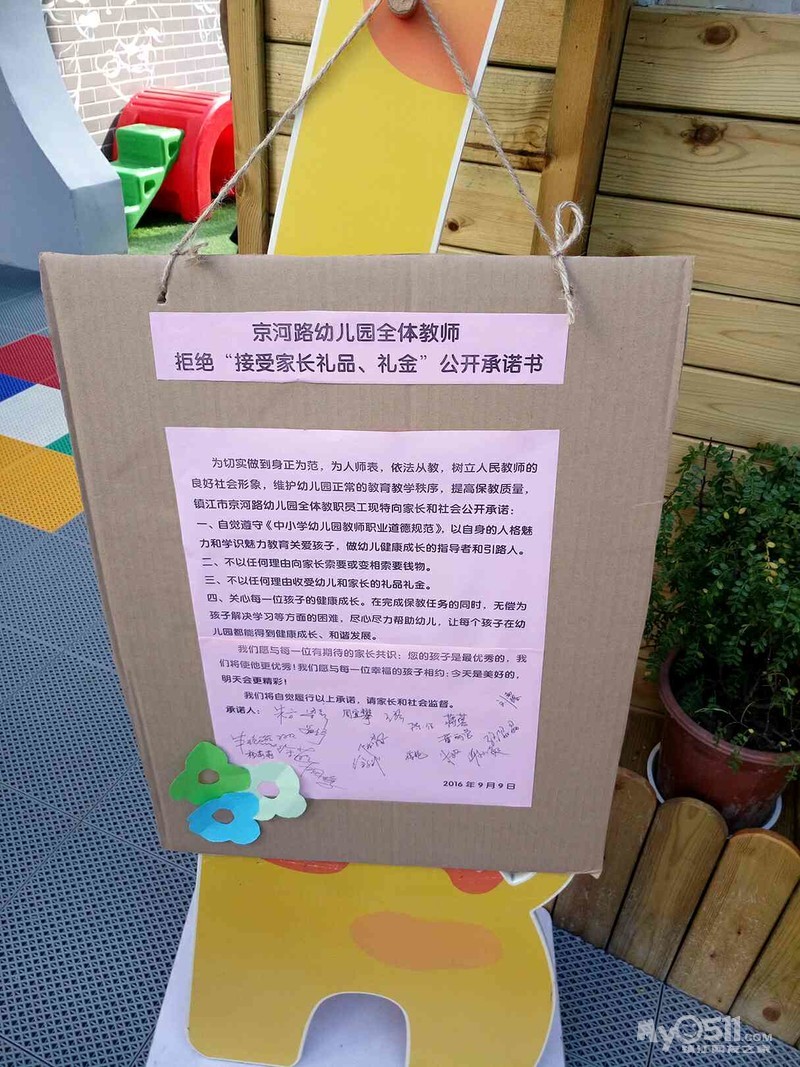 京河路幼儿园全体教师
拒绝“接受家长礼品、礼金”公开承诺书
为切实做到身正为范，为人师表，依法从教，树立人民教师的
良好社会形象，维护幼儿园正常的教育教学秩序，提高保教质量，
镇江市京河路幼儿园全体教职员工现特向家长和社会公开承诺：
一、自觉遵守《中小学幼儿园教师职业道德规范》，以自身的人格魅
力和学识魅力教育关爱孩子，做幼儿健康成长的指导者和引路人。
二、不以任何理由向家长索要或变相索要钱物。
三、不以任何理由收受幼儿和家长的礼品礼金。
四、关心每一位孩子的健康成长。在完成保教任务的同时，无偿为
孩子解决学习等方面的困难，尽心尽力帮助幼儿，让每个孩子在幼
儿园都能得到健康成长、和谐发展。
我们愿与每一位有期待的家长共识：您的孩子是最优秀的，我
们将使他更优秀！我们愿与每一位幸福的孩子相约：今天是美好的，
明天会更精彩！
我们将自觉履行以上承诺，请家长和社会监督。
承诺人：
2016年9月9日
My0511.COM
镇江网友之家